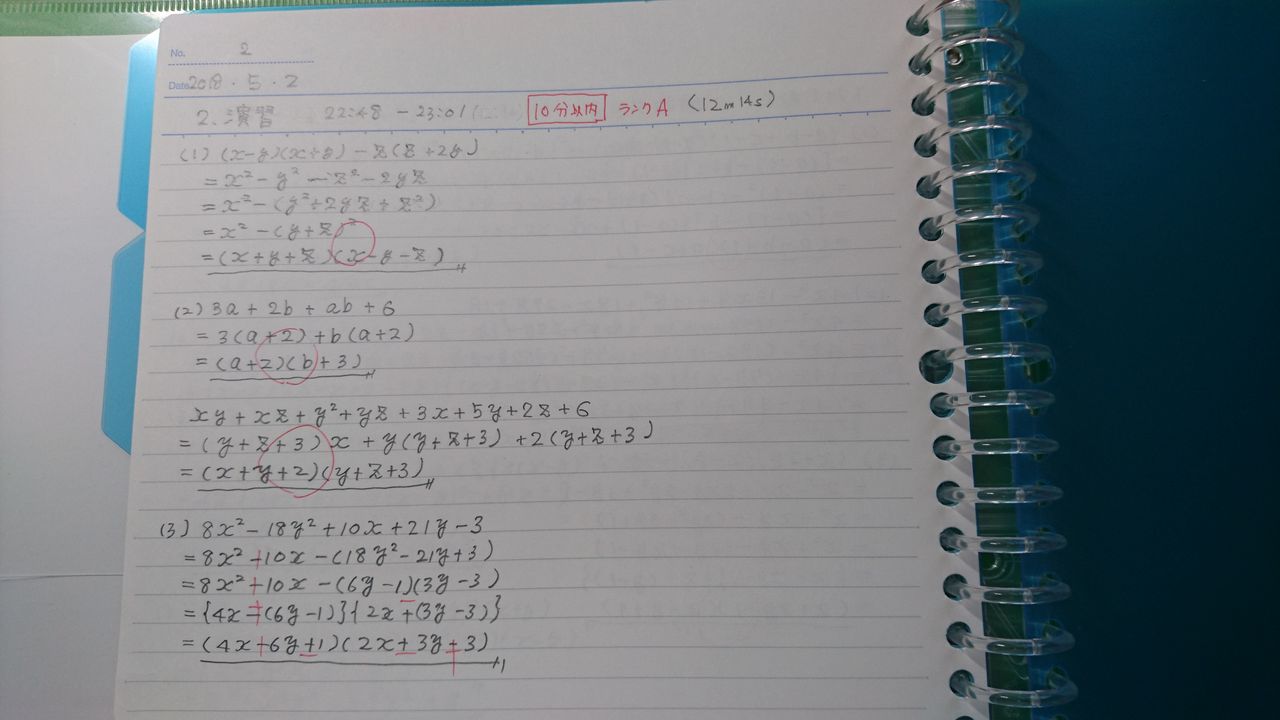 No. 2
Date 2018・5・2
2. 演習 22:48 - 23:01 10分以内 ランクA (12m14s)
(1) (x-y)(x+y) - z(z+2y)
= x² - y² - z² - 2yz
= x² - (y² + 2yz + z²)
= x² - (y+z)²
= (x+y+z)(x-y-z)
(2) 3a + 2b + ab + 6
= 3(a+2) + b(a+2)
= (a+2)(b+3)
xy + xz + y² + yz + 3x + 5y + 2z + 6
= (y+z+3)x + y(y+z+3) + 2(y+z+3)
= (x+y+2)(y+z+3)
(3) 8x² - 18y² + 10x + 21y - 3
= 8x² + 10x - (18y² - 21y + 3)
= 8x² + 10x - (6y-1)(3y-3)
= {4x-(6y-1)}{2x+(3y-3)}
= (4x+6y+1)(2x+3y+3)